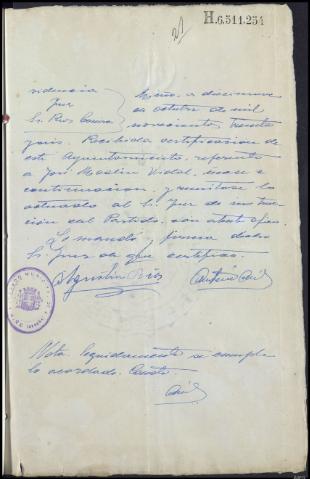 21
H.6.511.254
Providencia
Juez
Sr. Rios Corvera
Miño, a diecinueve
de octubre de mil
novecientos treinta
y seis. Recibida certificacion de
este Ayuntamiento, referente
a Vidal, unase a
continuacion, y remitase lo
actuado al Sr. Juez de instruc
cion del Partido, con atento oficio.
Lo mandó y firma dicho
Sr. Juez de que certifico.
Agustin Rios
Nota. Seguidamente se cumple
lo acordado. Conste.